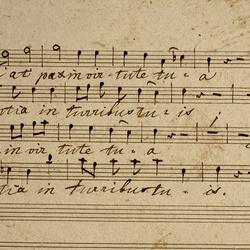 i at pax in vir-tute tu-a
tia in turribus tu-is
in vir tute tu-a
tia in turribus tu-is.